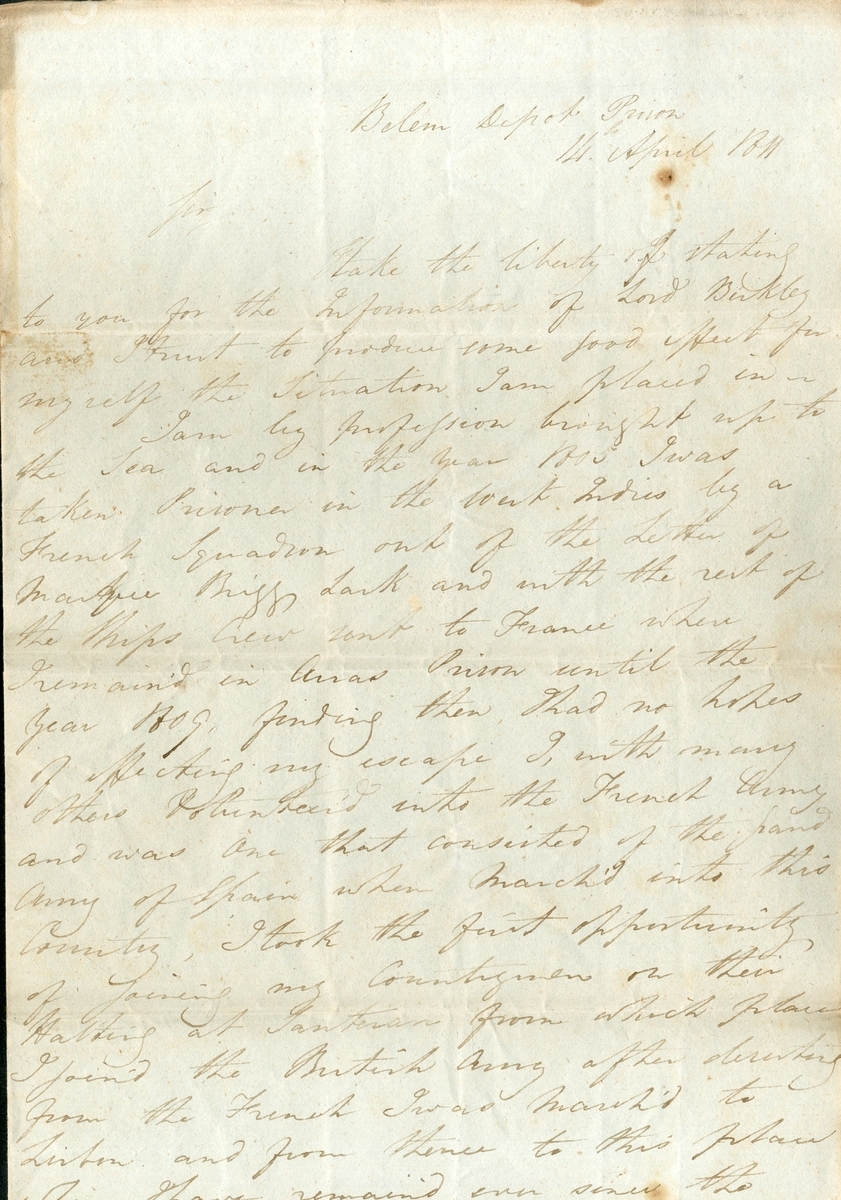 Belem Depot Prison
14th April 1811
Sir
I take the liberty of stating
to you for the Information of Lord Berkley
and I trust to produce some good effect for
myself the Situation I am placed in
I am by profession brought up to
the Sea and in the year 1805 I was
taken Prisoner in the West Indies by a
French Squadron out of the Letter of
Marque Brigg Lark and with the rest of
the Ships Crew sent to France where
I remain'd in Arras Prison until the
year 1809, finding then I had no hopes
of effecting my escape I, with many
others Volunteer'd into the French Army
and was One that consisted of the
Army of Spain when March'd into this
Country, I took the first opportunity
of joining my Countrymen on their
Halting at Santaram from which place
I join'd the British Army after deserting
from the French I was March'd to
Lisbon and from thence to this place
I have remain'd ever since the